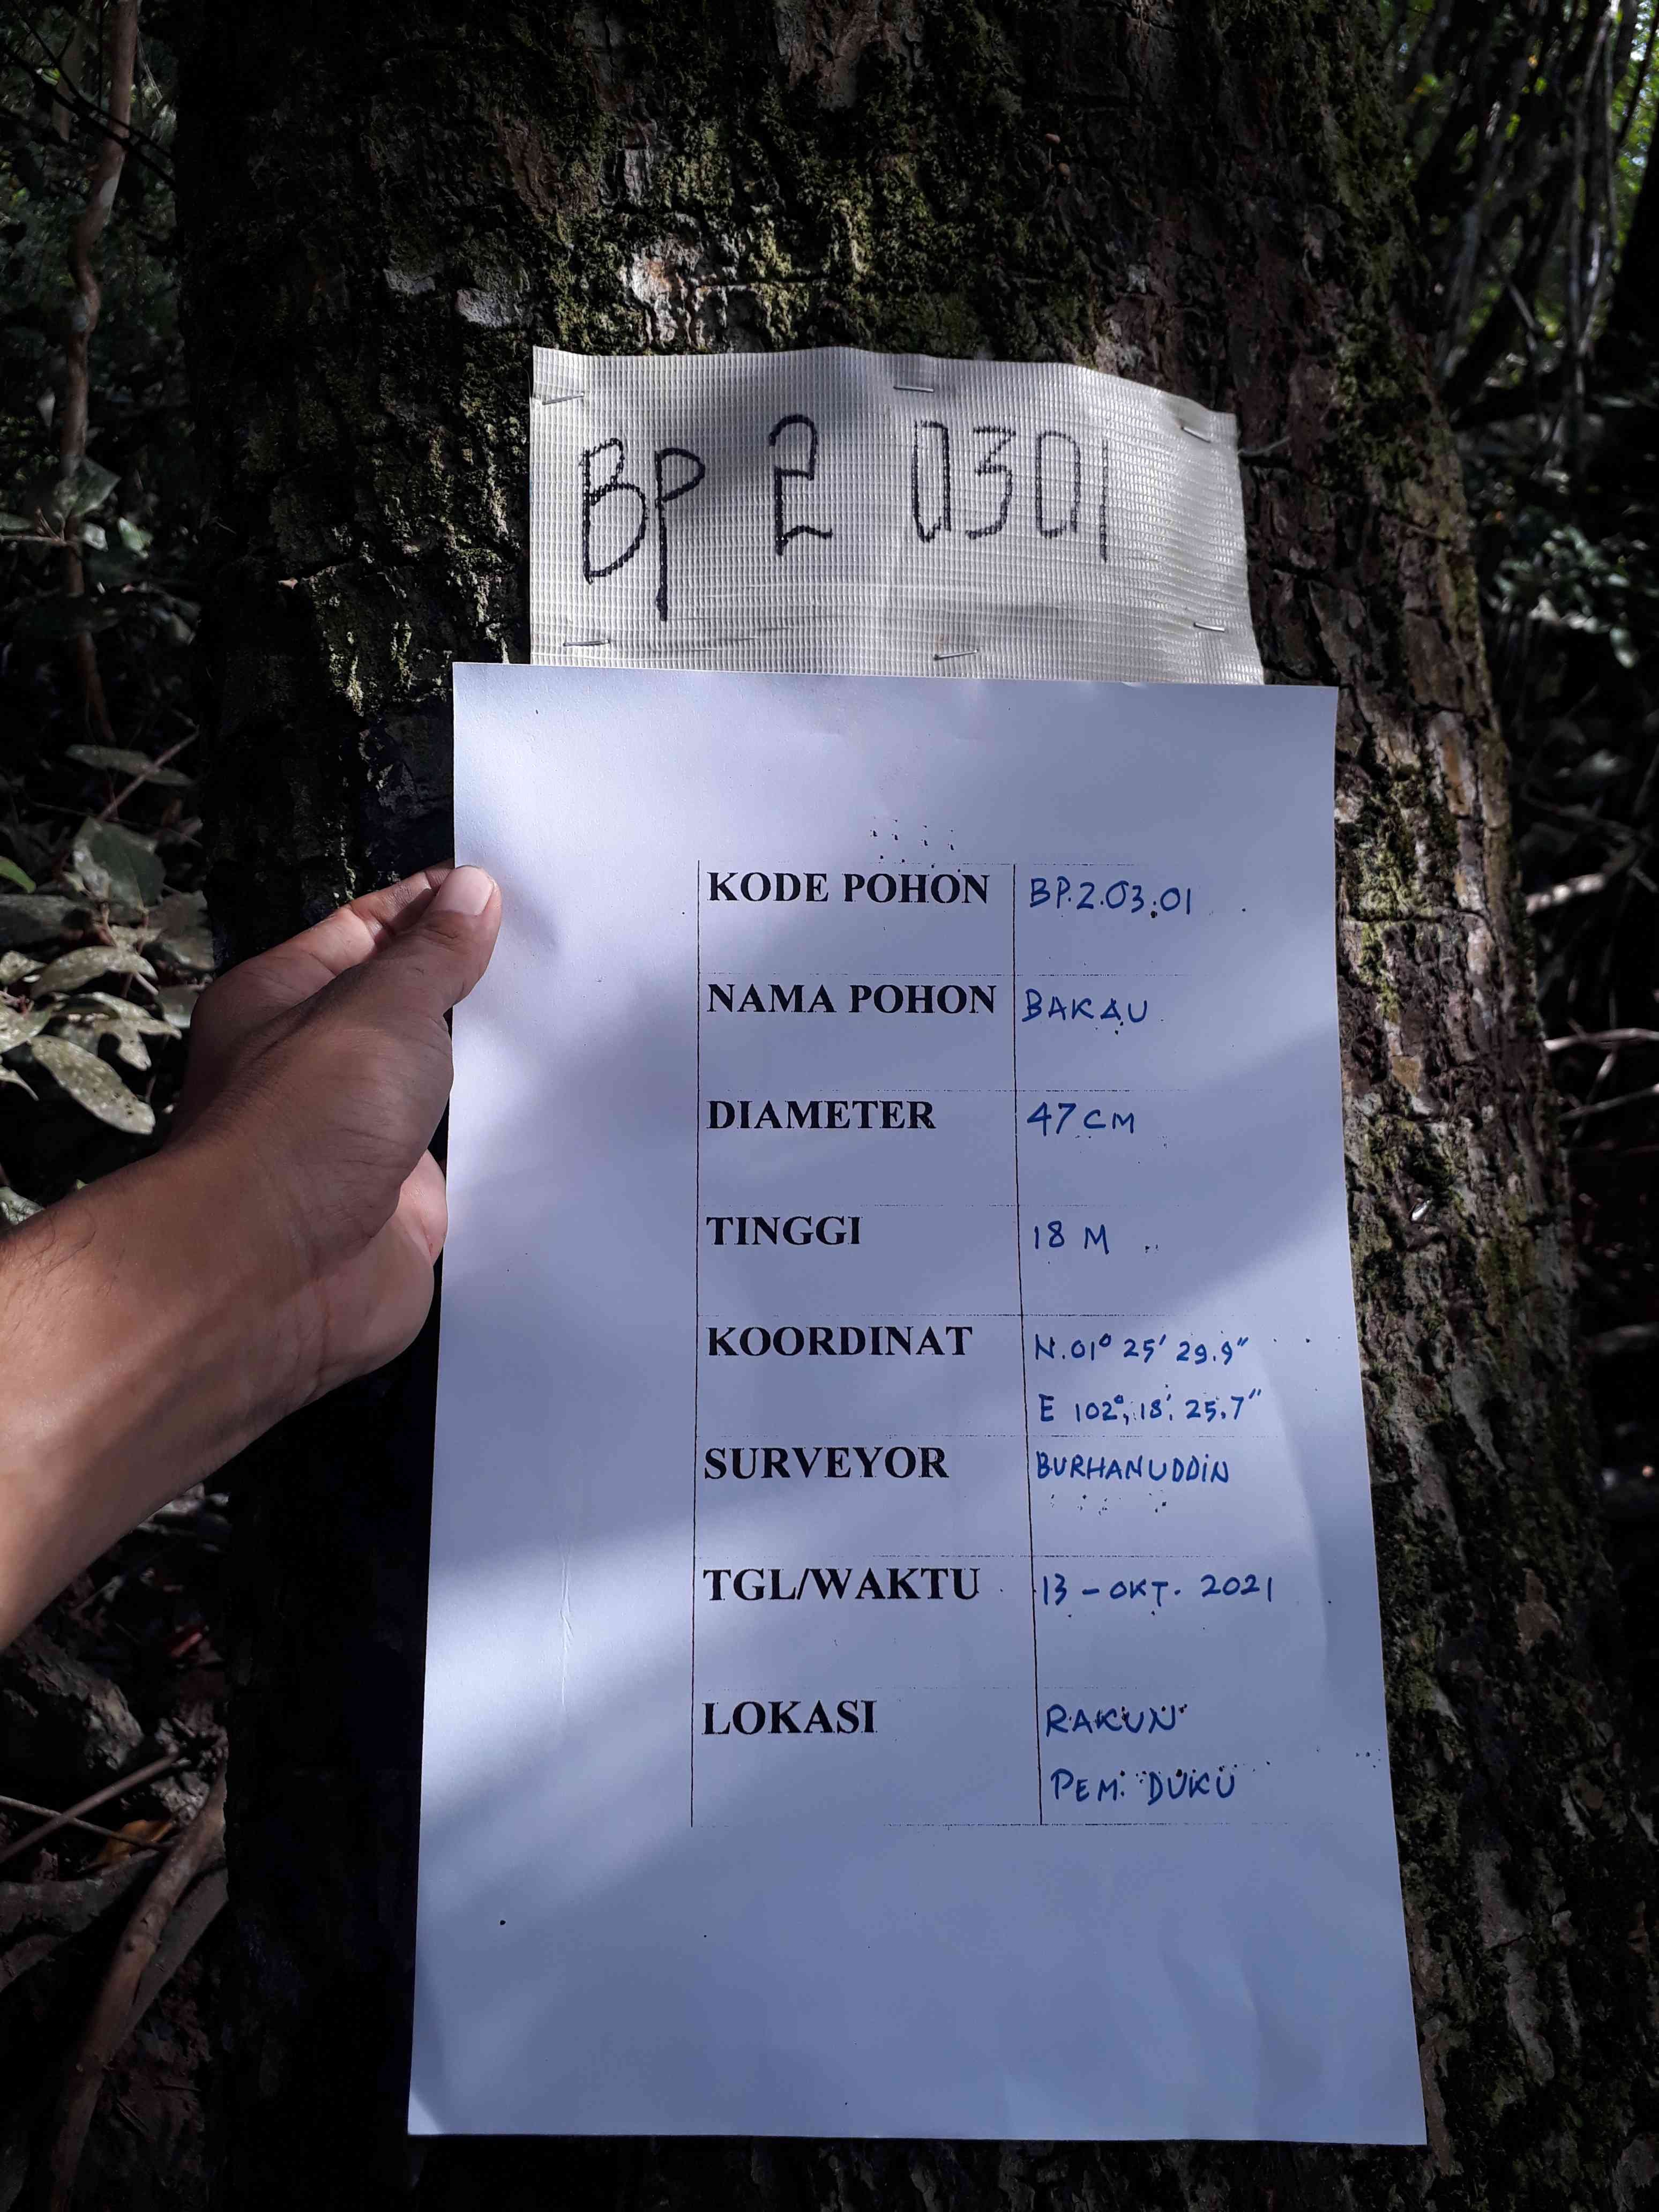 BP 2 0301
KODE POHON BP.2.03.01
NAMA POHON BAKAU
DIAMETER 47 CM
TINGGI 18 M
KOORDINAT N.01° 25' 29.9"
E 102°, 18'. 25.7"
SURVEYOR BURHANUDDiN
TGL/WAKTU 13 - OKT. 2021
LOKASI RAKUN
PEM. DUKU